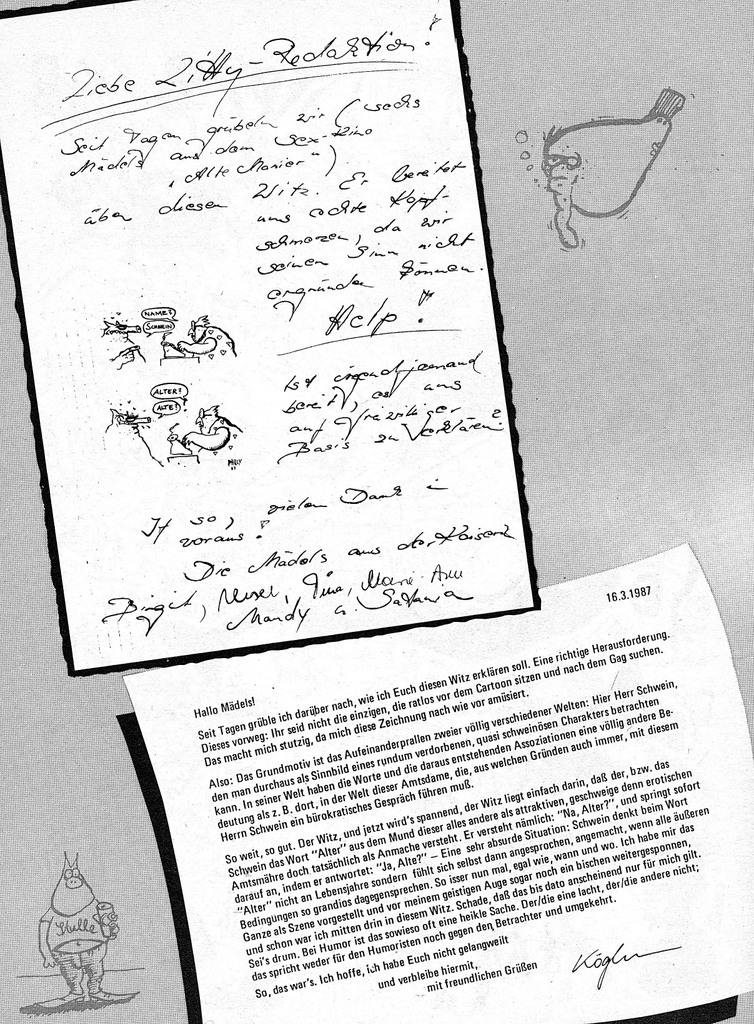 Liebe Zitty-Redaktion!
Seit Tagen grübeln wir (sechs
Mädels aus dem Sex-Kino
"Alte Manier")
über diesen Witz. Er bereitet
uns echte Kopf-
schmerzen, da wir
seinen Sinn nicht
ergründen können.
Help!
NAME?
SCHWEIN
ALTER?
ALTE!
Ist irgendjemand
bereit, es uns
auf freiwilliger
Basis zu erklären?
If so, vielen Dank im
voraus!
Die Mädels aus der
Birgit, Tina,
Mandy u.
16.3.1987
Hallo Mädels!
Seit Tagen grüble ich darüber nach, wie ich Euch diesen Witz erklären soll. Eine richtige Herausforderung.
Dieses vorweg: Ihr seid nicht die einzigen, die ratlos vor dem Cartoon sitzen und nach dem Gag suchen.
Das macht mich stutzig, da mich diese Zeichnung nach wie vor amüsiert.
Also: Das Grundmotiv ist das Aufeinanderprallen zweier völlig verschiedener Welten: Hier Herr Schwein,
den man durchaus als Sinnbild eines rundum verdorbenen, quasi schweinösen Charakters betrachten
kann. In seiner Welt haben die Worte und die daraus entstehenden Assoziationen eine völlig andere Be-
deutung als z. B. dort, in der Welt dieser Amtsdame, die, aus welchen Gründen auch immer, mit diesem
Herrn Schwein ein bürokratisches Gespräch führen muß.
So weit, so gut. Der Witz, und jetzt wird's spannend, der Witz liegt einfach darin, daß der, bzw. das
Schwein das Wort "Alter" aus dem Mund dieser alles andere als attraktiven, geschweige denn erotischen
Amtsmähre doch tatsächlich als Anmache versteht. Er versteht nämlich: "Na, Alter?", und springt sofort
darauf an, indem er antwortet: "Ja, Alte?" – Eine sehr absurde Situation: Schwein denkt beim Wort
"Alter" nicht an Lebensjahre sondern fühlt sich selbst dann angesprochen, angemacht, wenn alle äußeren
Bedingungen so grandios dagegensprechen. So isser nun mal, egal wie, wann und wo. Ich habe mir das
Ganze als Szene vorgestellt und vor meinem geistigen Auge sogar noch ein bischen weitergesponnen,
und schon war ich mitten drin in diesem Witz. Schade, daß das bis dato anscheinend nur für mich gilt.
Sei's drum. Bei Humor ist das sowieso oft eine heikle Sache. Der/die eine lacht, der/die andere nicht;
das spricht weder für den Humoristen noch gegen den Betrachter und umgekehrt.
So, das war's. Ich hoffe, ich habe Euch nicht gelangweilt
und verbleibe hiermit,
mit freundlichen Grüßen
Kögler